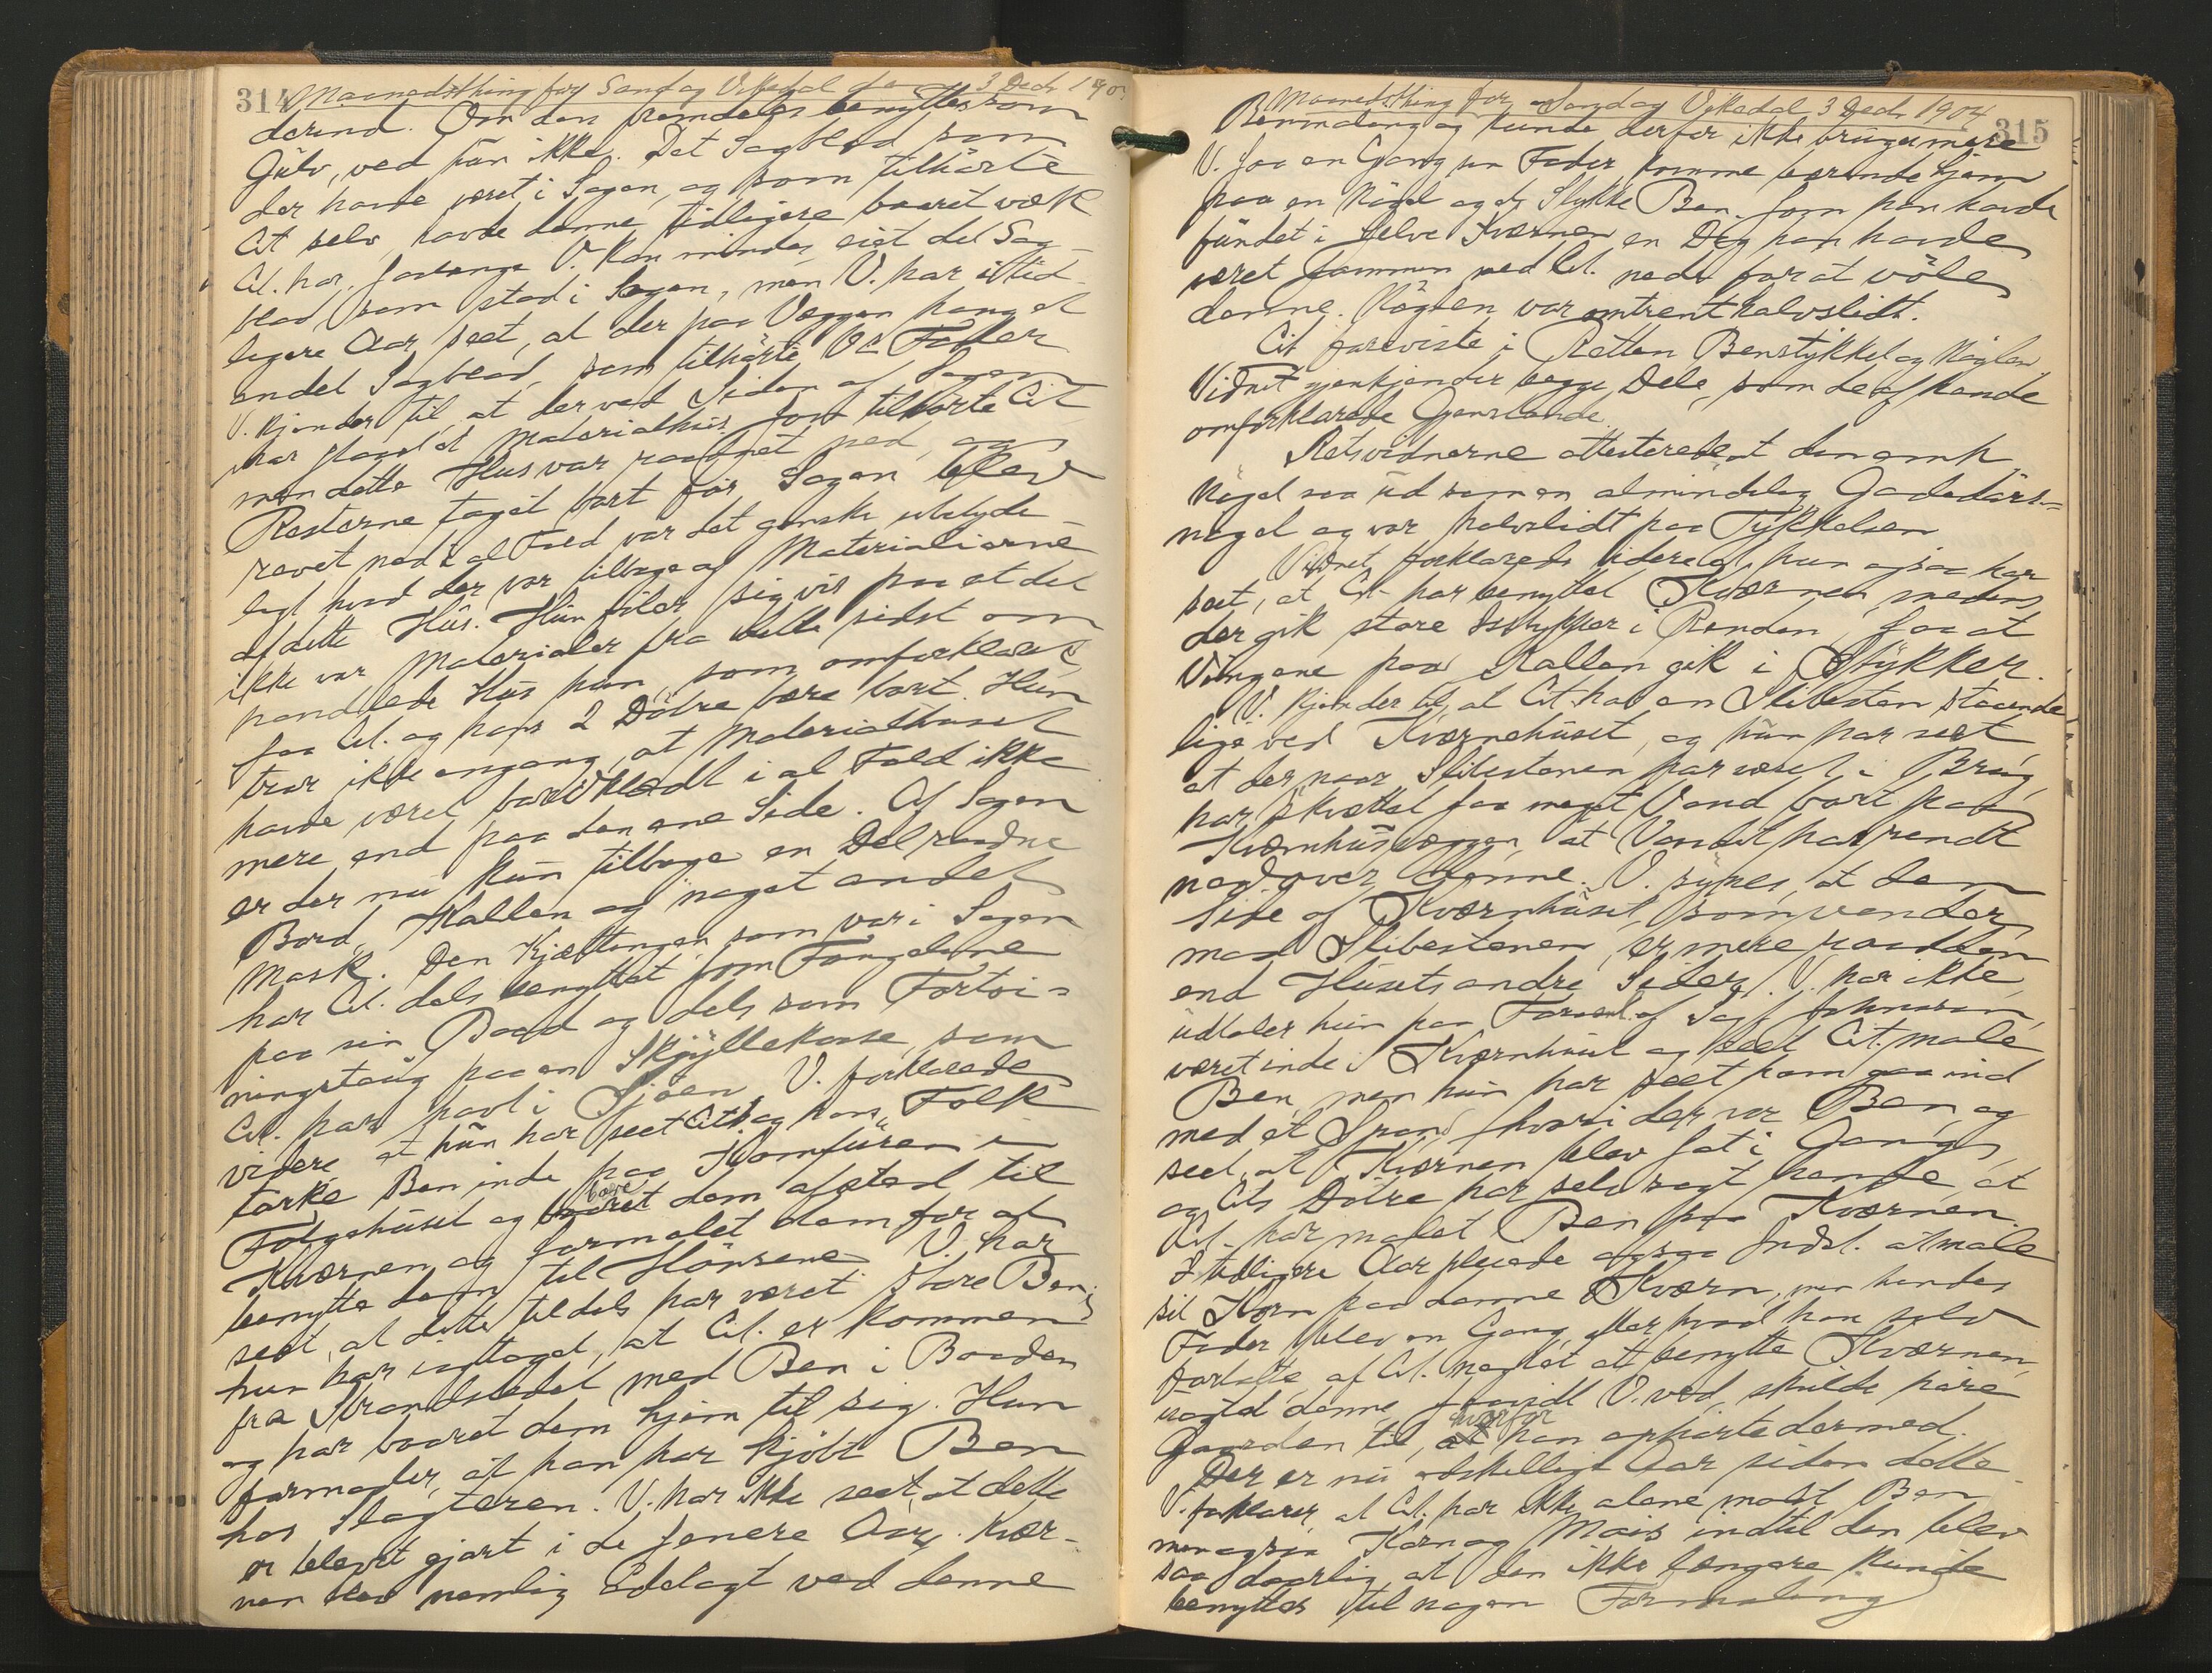 314 Maanedsthing for Sand og Vikedal den 3 Decbr 190
derind. Om den fremdeles benyttes som
Gulv, ved hun ikke. Det Sagblad som
der havde været i Sagen, og som tilhørte
Cit selv, havde denne tidligere baaret væk
Cit. har, saalænge V. kan mindes, eiet det Sag-
blad, som stod i Sagen, men V. har i tid-
ligere Aar seet, at der paa Væggen hang et
andet Sagblad, som tilhørte Vs Fader
V. kjender til, at der ved Siden af Sagen
har staaet et Materialhus som tilhørte Cit
men dette Hus var raadnet ned, og
Resterne taget bort før Sagen blev
revet ned i al Fald var det ganske ubetyde-
ligt hvad der var tilbage af Materialierne
af dette Hus. Hun føler sig vis paa at det
ikke var Materialer fra dette sidst om
handlede Hus hun, som omforklaret,
saa Cit. og hans 2 Døtre bære bort. Hun
tror ikke engang, at Materialhuset
havde været bordklædt i al Fald ikke
mere end paa den ene Side. Af Sagen
er der nu kun tilbage en Del raadne
Bord, Kallen og noget andet
Mask. Den Kjættingen som var i Sagen
har Cit. dels benyttet som Fangeline
paa sin Baad og dels som Fortøi-
ningstaug paa en Skjyllekasse, som
Cit. har havt i Sjøen. V. forklarede
videre at hun har seet Cit. og hans Folk
tørke Ben inde paa Komfuren i
Følgehuset og baaret dem afsted til
bære
Kværnen og formalet dem for at
benytte dem til Hønsene. V. har
seet, at dette tildels har været store Ben;
hun har iagttaget, at Cit. er kommen
fra Strandstedet med Ben i Baaden
og har baaret dem hjem til sig. Hun
formoder, at han har kjøbt Ben
hos Slagteren. V. har ikke seet, at dette
er blevet gjort i de senere Aar. Kvær-
nen blev nemlig ødelagt ved denne
Maanedsthing for Sand og Vikedal 3 Decbr 1904 315
Benmaling og kunde derfor ikke bruges mere
V. saa en Gang sin Fader komme bærende hjem
paa en Nagel og et Stykke Ben som han havde
fundet i selve Kværnen en Dag han havde
været sammen med Cit. nede for at vøle
denne. Naglen var omtrent halvslidt.
Cit foreviste i Retten Benstykket og Naglen
Vidnet gjenkjender begge Dele, som de af hende
omforklarede Gjenstande.
Retsvidnerne attesterede at den omh
Nagel saa ud som en almindelig Gadedørs-
nagel og var halvslidt paa Tykkelsen
Vidnet forklarede videre at hun ogsaa har
seet, at Cit har benyttet Kværnen medens
der gik store Isstykker i Renden, saa at
Vingene paa Kallen gik i Stykker.
V. kjender til, at Cit. har en Slibesten staaende
lige ved Kværnehuset, og hun har seet
at der naar Slibestenen har været i Brug,
har skvættet saa meget Vand bort paa
Kværnhusvæggen, at Vandet har rendt
nedover denne. V. synes, at den
Side af Kværnhuset, som vender
mod Slibestenen er mere raadden
end Husets andre Sider. V. har ikke,
udtaler hun paa Foranl. af Sagf. Johnsen
været inde i Kværnhuset og seet Cit. male
Ben, men hun har seet ham gaa ind
med et Spand, hvori der var Ben, og
seet, at Kværnen blev sat i Gang
og Cits Døtre har selv sagt hende, at
Cit. har malet Ben paa Kværnen.
I tidligere Aar pleiede ogsaa Indst. at male
sit Korn paa denne Kværn, men hendes
Fader blev en Gang, efter hvad han selv
fortalte, af Cit. nægtet at benytte Kværnen,
uagtet denne, saavidt V. ved, skulde høre
Gaarden til, at han ophørte dermed.
hvorfor
Der er nu adskillige Aar siden dette.
V. forklarer, at Cit. har ikke alene malt Ben
men ogsaa Korn og Mais indtil den blev
saa daarlig, at den ikke længere kunde
benyttes til nogen Formaling